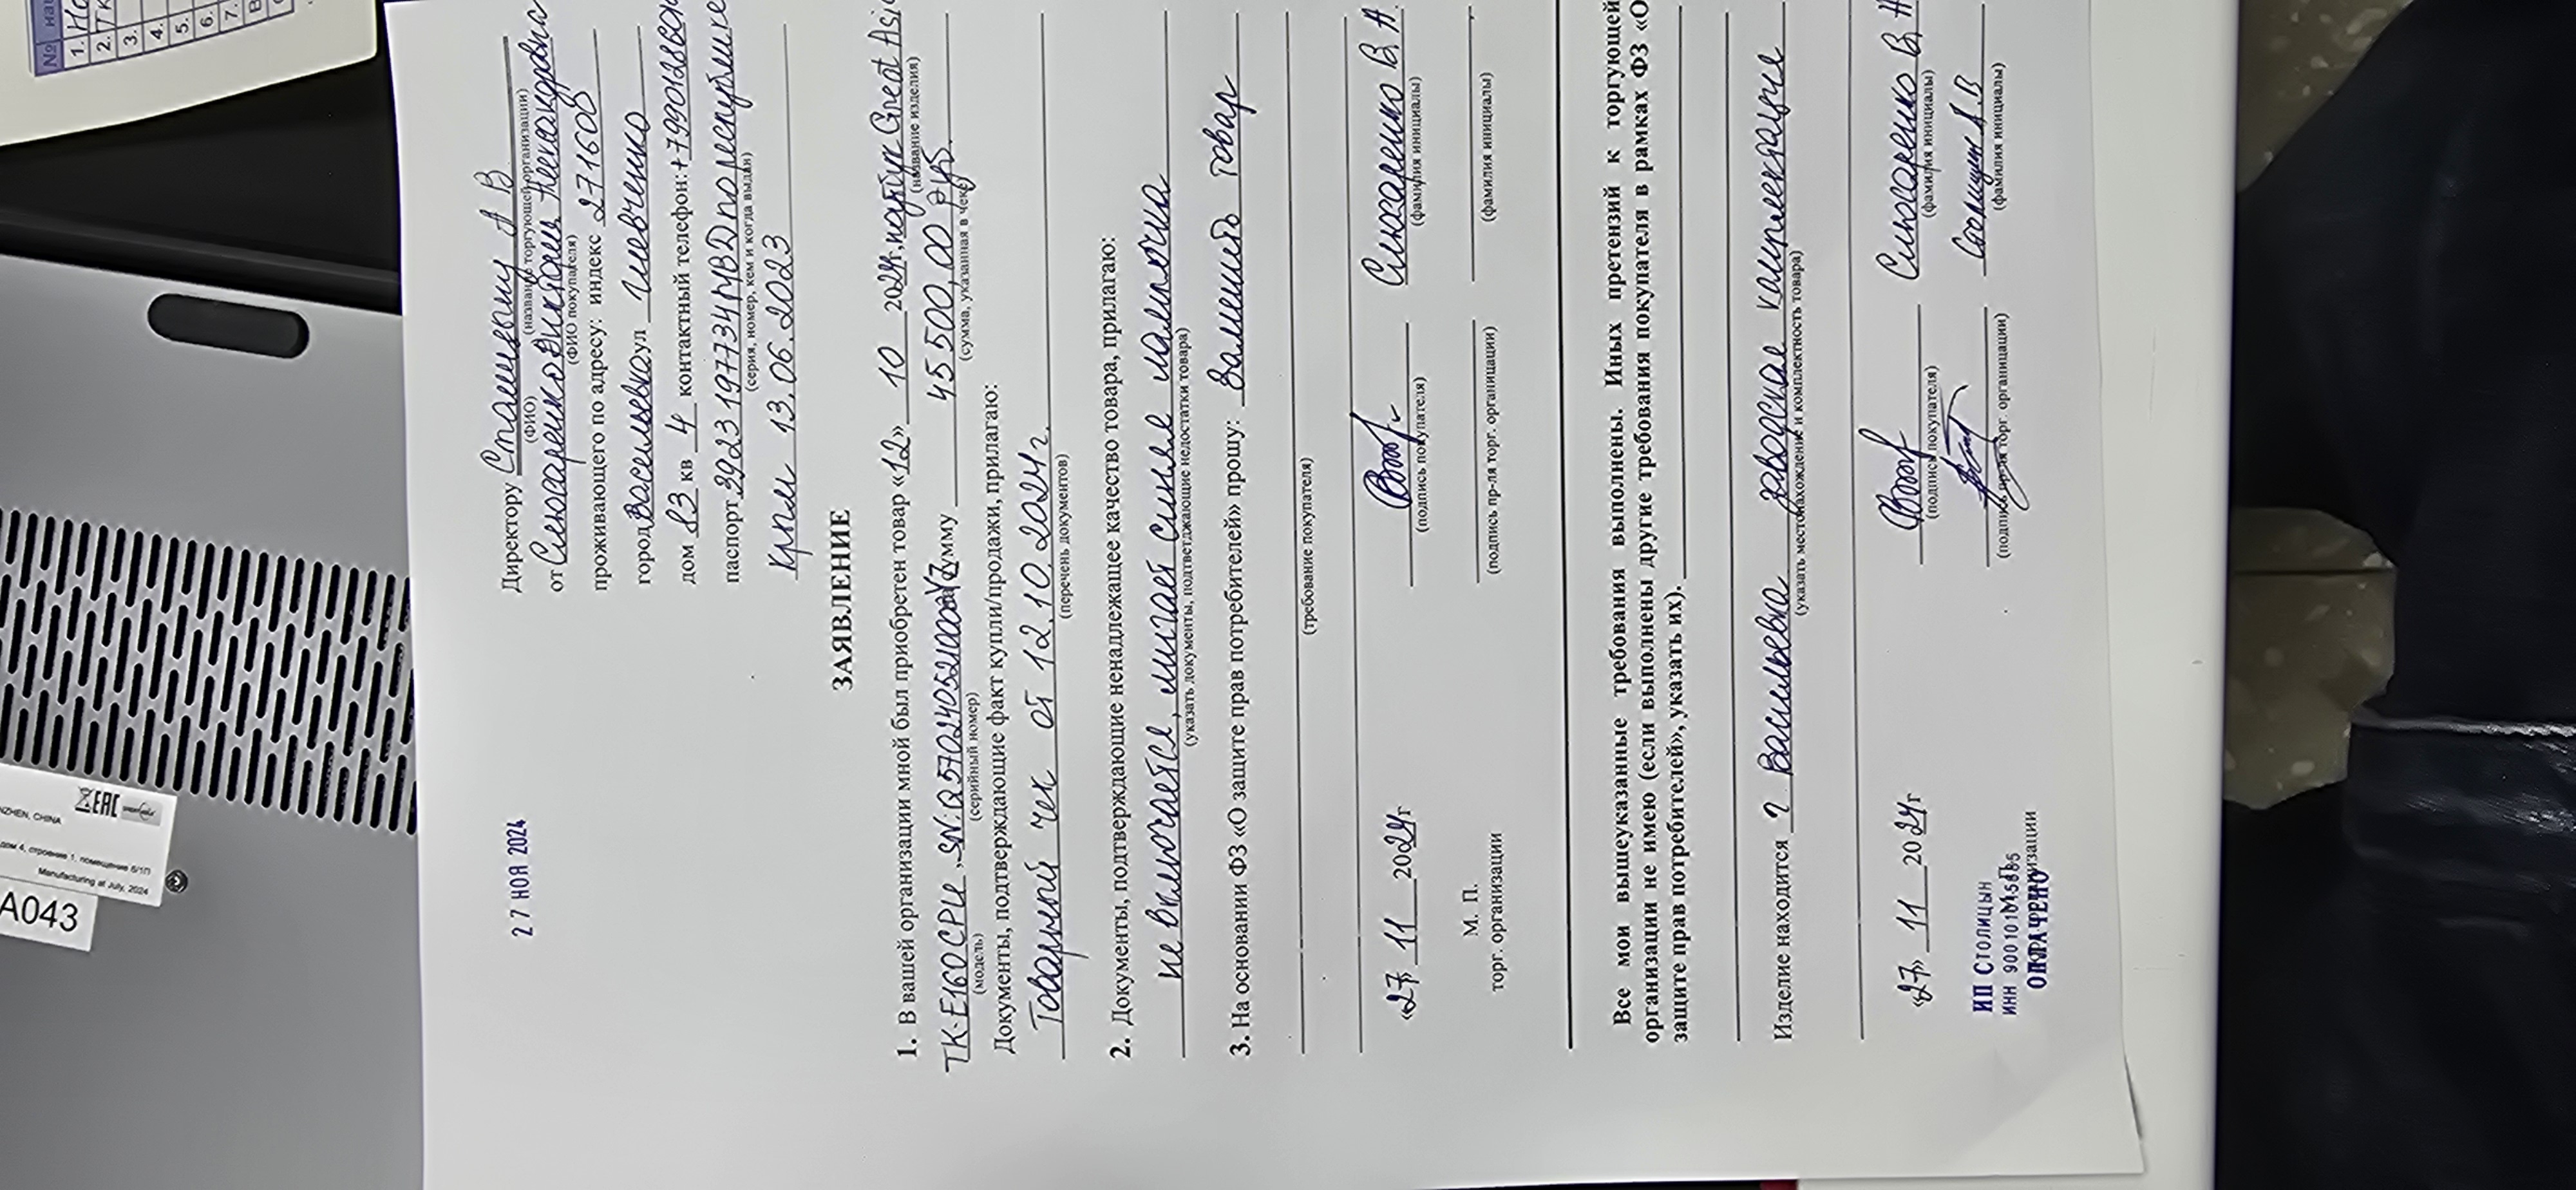 №
1.
2. ТК
3.
4.
5.
6.
7.
NZHEN, CHINA
дом 4, строение 1, помещение 6/1П
Manufacturing at July, 2024
EAC
A043
27 НОЯ 2024
Директору Столицыну А В
(ФИО) (название торгующей организации)
от Слюсаренко Виктории
(ФИО покупателя)
проживающего по адресу: индекс 271608
город Васильевка ул Шевченко
дом 83 кв 4 контактный телефон:
паспорт 3923 197734 МВД по республике
(серия, номер, кем и когда выдан)
Крым 13.06.2023
ЗАЯВЛЕНИЕ
1. В вашей организации мной был приобретен товар «12» 10 2024г. ноутбук Great Asia
(название изделия)
TK-E160CPU, SN: сумму 45 500,00 руб.
(модель) (серийный номер) (сумма, указанная в чеке)
Документы, подтверждающие факт купли/продажи, прилагаю:
Товарный чек от 12.10.2024г.
(перечень документов)
2. Документы, подтверждающие ненадлежащее качество товара, прилагаю:
не включается, мигает синяя лампочка
(указать документы, подтверждающие недостатки товара)
3. На основании ФЗ «О защите прав потребителей» прошу: Заменить товар
(требование покупателя)
«27» 11 2024г Слюсаренко В Н.
(подпись покупателя) (фамилия инициалы)
М. П.
торг. организации (подпись пр-ля торг. организации) (фамилия инициалы)
Все мои вышеуказанные требования выполнены. Иных претензий к торгующей
организации не имею (если выполнены другие требования покупателя в рамках ФЗ «О
защите прав потребителей», указать их).
Изделие находится г Васильевка заводская комплектация
(указать местонахождение и комплектность товара)
«27» 11 2024г Слюсаренко В Н
(подпись покупателя) (фамилия инициалы)
Столицын А.В
(подпись пр-ля торг. организации) (фамилия инициалы)
ИП Столицын
ИНН
ОПЛАЧЕНО